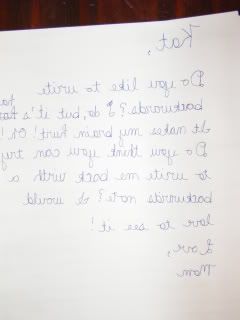 Kat,
Do you like to write
backwords? I do, but it's
It makes my brain hurt!
Do you think you can try
to write me back with a
backwords note? I would
love to see it!
Love,
Mom